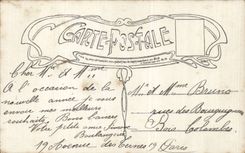 CARTE POSTALE
Cher Mr et Mme
A l'occasion de la
nouvelle année je vous
envoie mes meilleurs
souhaits. Bons baisers
Votre petite amie
Boulanger
17 Avenue des Ternes 17 Paris
Mr et Mme Bruno
rue des Bourguignons
Bois Colombes